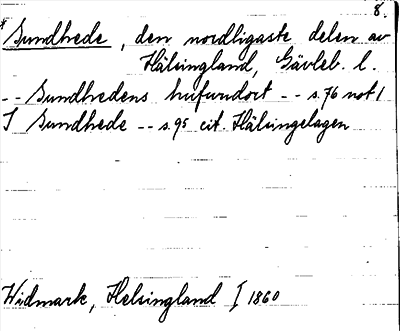 8.
* Sundhede, den nordligaste delen av
Hälsingland, Gävleb. l.
-- Sundhedens hufvudort -- s. 76 not 1
I Sundhede -- s. 95 cit. Hälsingelagen
Widmark, Helsingland I 1860